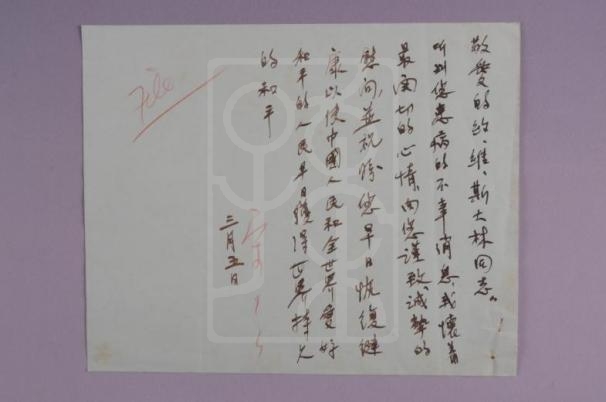 敬爱的约、维、斯大林同志。
听到您患病的不幸消息，我懷着
最関切的心情，向您谨致诚挚的
慰问，並祝您早日恢復健
康以使中國人民和全世界爱好
和平的人民早日獲得世界持久
的和平
三月五日
File